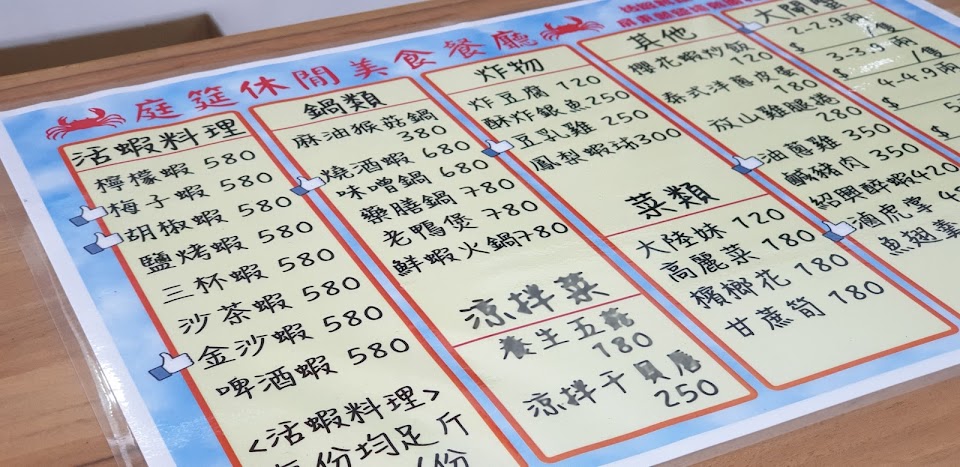 庭筵休閒美食餐廳
活蝦料理
檸檬蝦 580
梅子蝦 580
胡椒蝦 580
鹽烤蝦 580
三杯蝦 580
沙茶蝦 580
金沙蝦 580
啤酒蝦 580
<活蝦料理>
份均足斤
鍋類
麻油猴菇鍋
380
燒酒蝦 680
味噌鍋 680
藥膳鍋 780
老鴨煲 780
鮮蝦火鍋780
涼拌菜
養生五菇
180
涼拌干貝唇
250
炸物
炸豆腐 120
酥炸銀魚250
豆乳雞 250
鳳梨蝦球300
菜類
大陸妹 120
高麗菜 180
檳榔花 180
甘蔗筍 180
其他
櫻花蝦炒飯
180
泰式洋蔥皮蛋
120
放山雞腿捲
280
油蔥雞 350
鹹豬肉 350
紹興醉蝦420
滷虎掌
魚翅羹
大閘蟹
2-2.9兩/隻
$
3-3.9兩/隻
$
4-4.9兩/
$
5
$